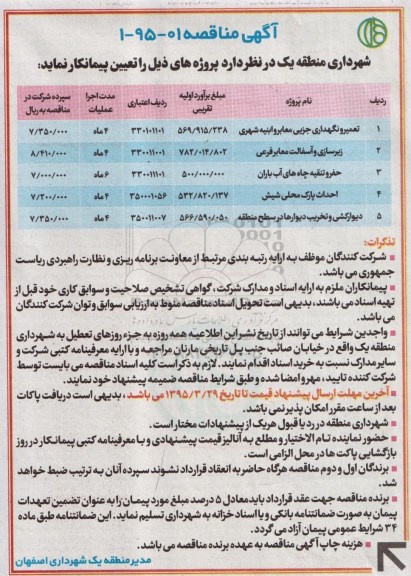 آگهی مناقصه ۰۱-۹۵-۱
شهرداری منطقه یک در نظر دارد پروژه های ذیل را تعیین پیمانکار نماید:
ردیف نام پروژه مبلغ برآورد اولیه تقریبی ردیف اعتباری مدت اجرا عملیات سپرده شرکت در مناقصه به ریال
۱ تعمیر و نگهداری جزیی معابر و ابنیه شهری ۵۶۹/۹۱۵/۲۳۸ ۳۳۰۱۰۱۱۰۱ ۴ ماه ۷/۳۵۰/۰۰۰
۲ زیرسازی و آسفالت معابر فرعی ۷۸۲/۰۱۴/۸۰۲ ۳۳۰۰۱۱۰۰۱ ۴ ماه ۸/۴۱۰/۰۰۰
۳ حفر و تنقیه چاه های آب باران ۵۰۰/۰۰۰/۰۰۰ ۳۳۰۰۱۱۰۱ ۶ ماه ۷/۰۰۰/۰۰۰
۴ احداث پارک محلی شیش ۵۳۲/۸۲۰/۱۳۷ ۳۵۰۰۰۱۰۵۶ ۴ ماه ۷/۲۰۰/۰۰۰
۵ دیوارکشی و تخریب دیوارها در سطح منطقه ۵۶۶/۵۹۰/۰۵۰ ۳۵۰۰۱۱۰۰۷ ۴ ماه ۷/۳۵۰/۰۰۰
تذکرات:
شرکت کنندگان موظف به ارایه رتبه بندی مرتبط از معاونت برنامه ریزی و نظارت راهبردی ریاست
جمهوری می باشد.
پیمانکاران ملزم به ارایه اسناد و مدارک شرکت، گواهی تشخیص صلاحیت و سوابق کاری خود قبل از
تهیه اسناد می باشند، بدیهی است تحویل اسناد مناقصه منوط به ارزیابی سوابق و توان شرکت کنندگان
می باشد.
واجدین شرایط می توانند از تاریخ نشر این اطلاعیه همه روزه به جزء روزهای تعطیل به شهرداری
منطقه یک واقع در خیابان صائب جنب پل تاریخی مارنان مراجعه و با ارایه معرفینامه کتبی شرکت و
سایر مدارک نسبت به خرید اسناد اقدام نمایند. لازم به ذکر است کلیه اسناد مناقصه می بایست توسط
شرکت کننده تایید، مهر و امضا شده و طبق شرایط مناقصه ضمیمه پیشنهاد خود نمایند.
آخرین مهلت ارسال پیشنهاد قیمت تا تاریخ ۱۳۹۵/۳/۲۹ می باشد، بدیهی است دریافت پاکات
بعد از ساعت مقرر امکان پذیر نمی باشد.
شهرداری منطقه در رد یا قبول هر یک از پیشنهادات مختار است.
حضور نماینده تام الاختیار و مطلع به آنالیز قیمت پیشنهادی و با معرفینامه کتبی پیمانکار در روز
بازگشایی پاکت ها در محل الزامی است.
برندگان اول و دوم مناقصه هرگاه حاضر به انعقاد قرارداد نشوند سپرده آنان به ترتیب ضبط خواهد
شد.
برنده مناقصه جهت عقد قرارداد باید معادل ۵ درصد مبلغ مورد پیمان را به عنوان تضمین تعهدات
پیمان به صورت ضمانتنامه بانکی و یا اسناد خزانه به شهرداری تسلیم نماید. این ضمانتنامه طبق ماده
۳۴ شرایط عمومی پیمان آزاد می گردد.
هزینه چاپ آگهی مناقصه به عهده برنده مناقصه می باشد.
مدیر منطقه یک شهرداری اصفهان